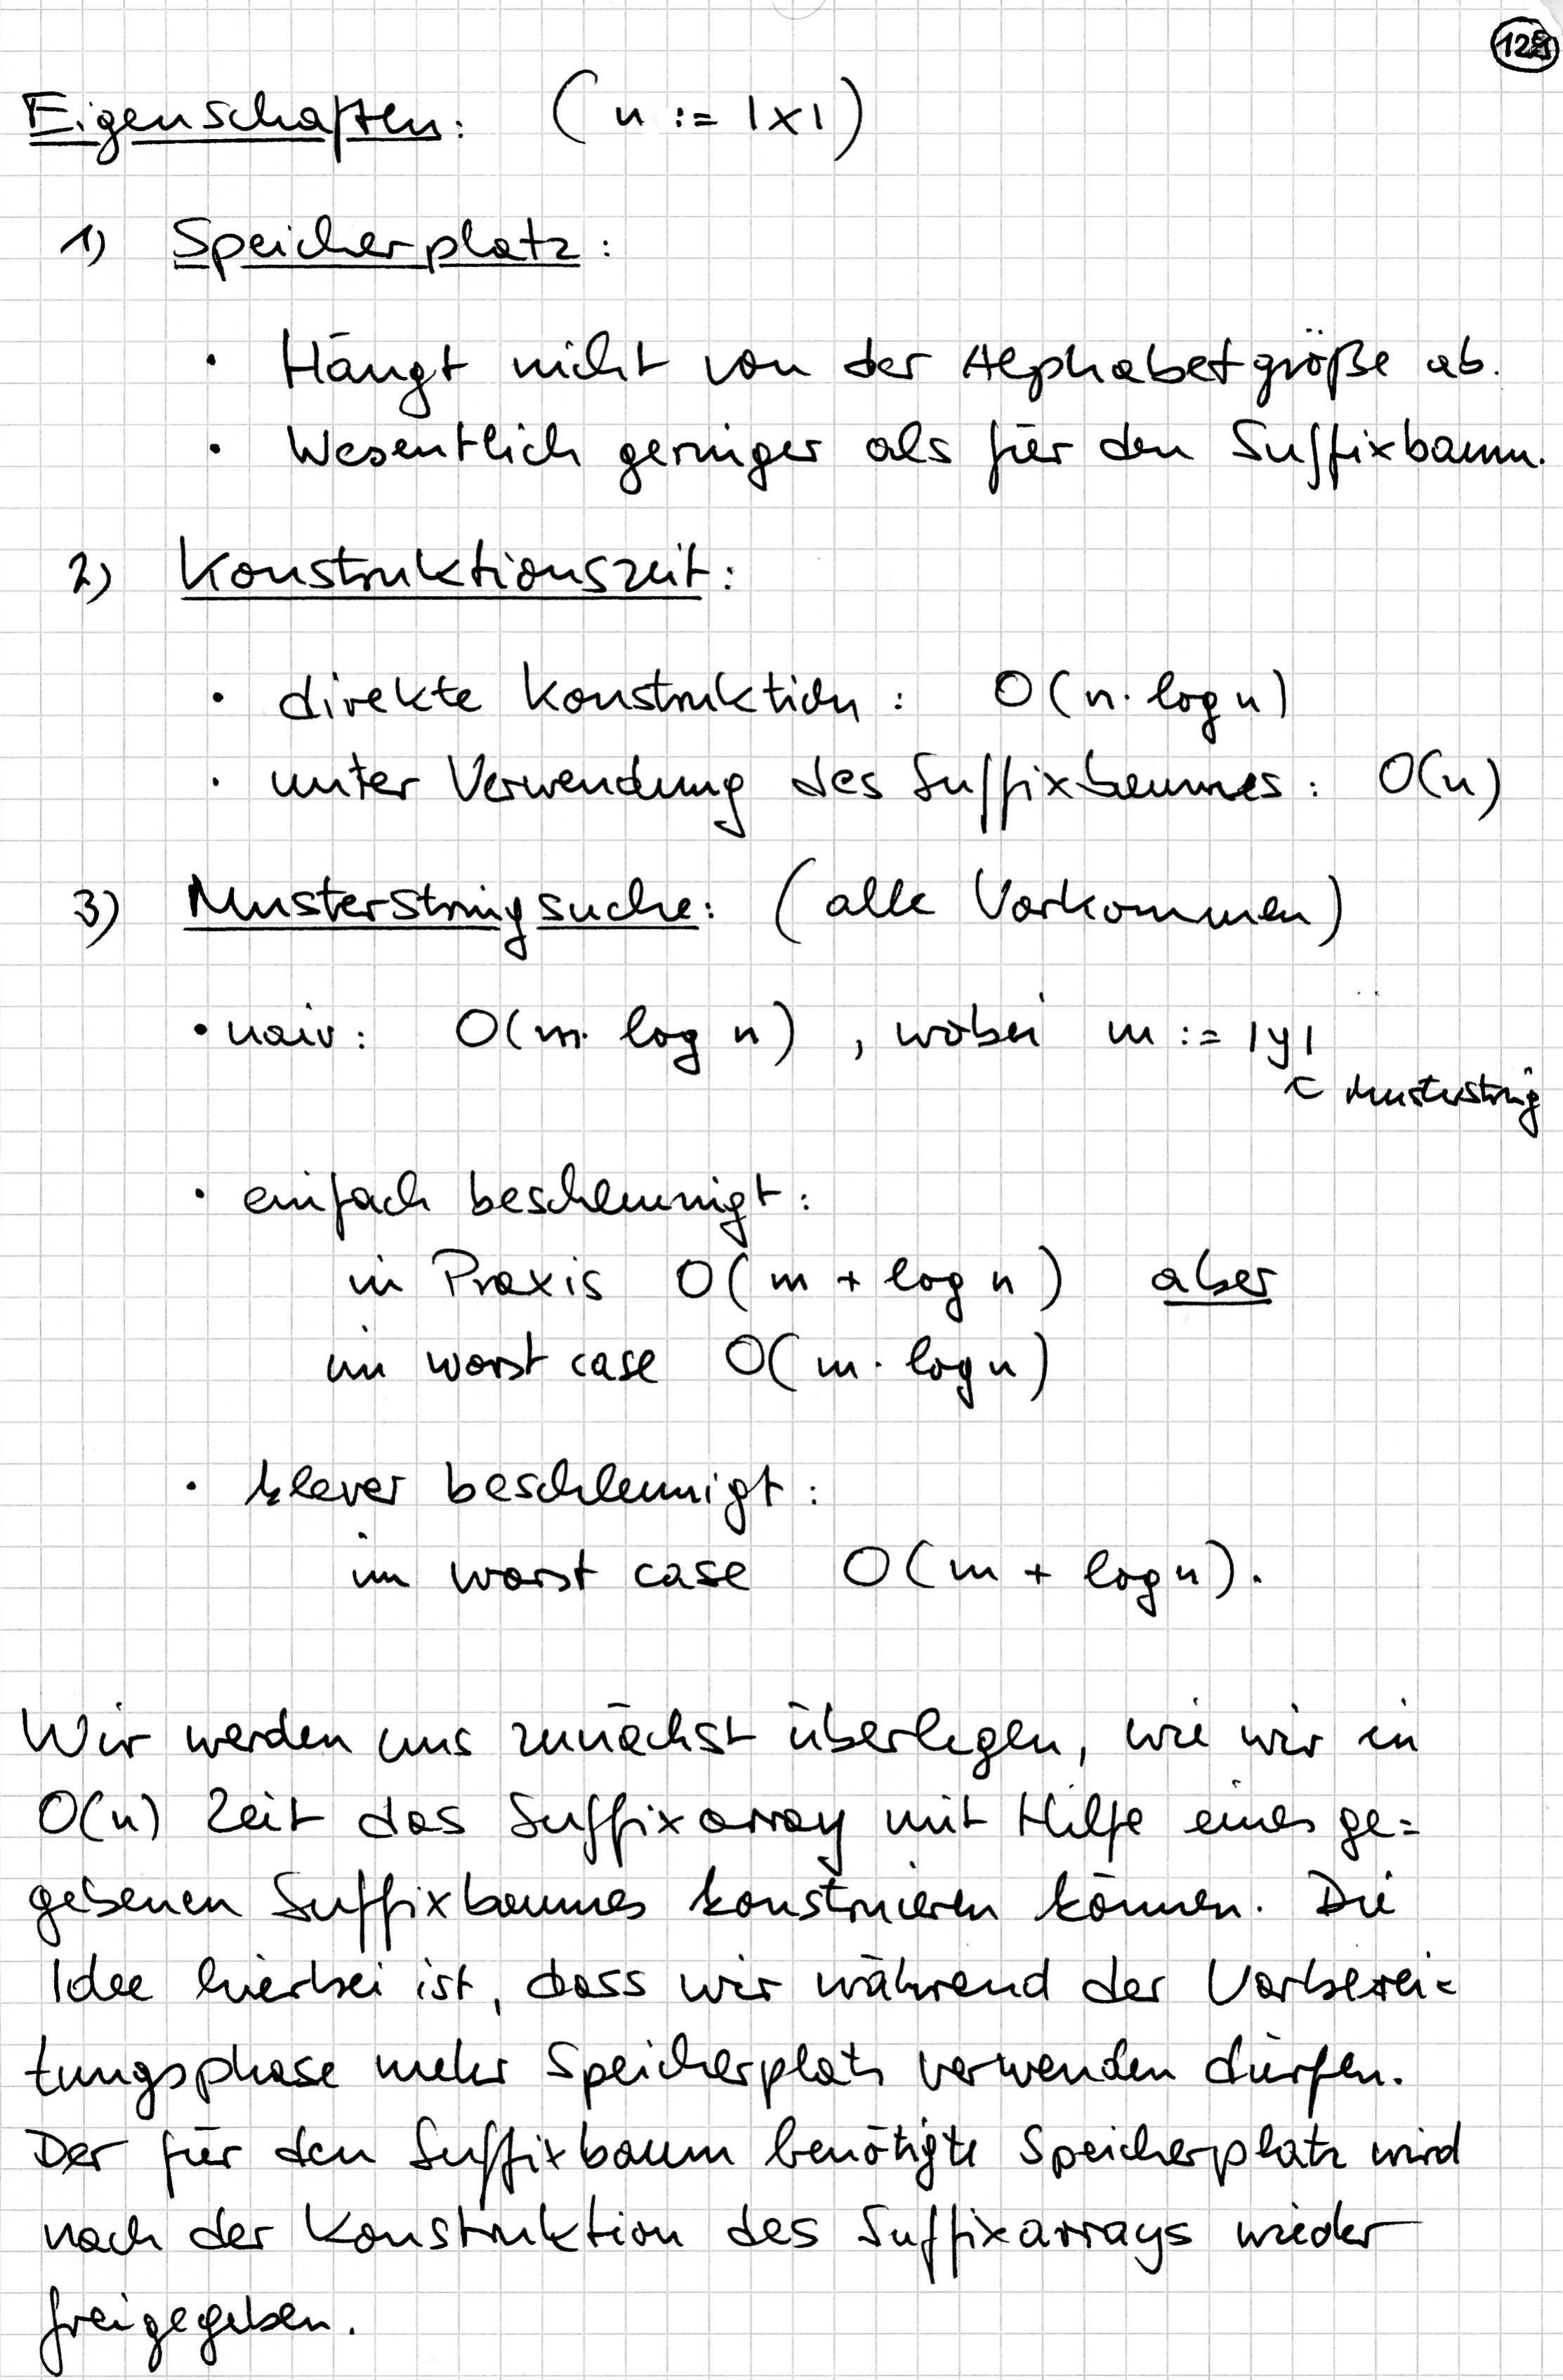 Eigenschaften: (n := |x|)
1) Speicherplatz:
• Hängt nicht von der Alphabetgröße ab.
• Wesentlich geringer als für den Suffixbaum.
2) Konstruktionszeit:
• direkte Konstruktion: O(n · log n)
• unter Verwendung des Suffixbaumes: O(n)
3) Musterstringsuche: (alle Vorkommen)
• naiv: O(m · log n), wobei m := |y|
↖ Musterstring
• einfach beschleunigt:
in Praxis O(m + log n) aber
im worst case O(m · log n)
• klever beschleunigt:
im worst case O(m + log n).
Wir werden uns zunächst überlegen, wie wir in
O(n) Zeit das Suffixarray mit Hilfe eines ge=
gebenen Suffixbaumes konstruieren können. Die
Idee hierbei ist, dass wir während der Vorberei=
tungsphase mehr Speicherplatz verwenden dürfen.
Der für den Suffixbaum benötigte Speicherplatz wird
nach der Konstruktion des Suffixarrays wieder
freigegeben.